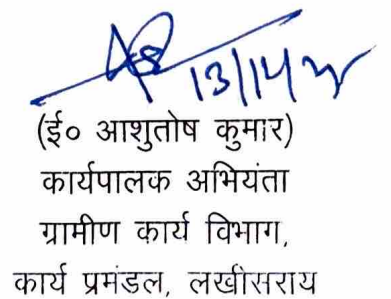 (ई० आशुतोष कुमार)
कार्यपालक अभियंता
ग्रामीण कार्य विभाग,
कार्य प्रमंडल, लखीसराय